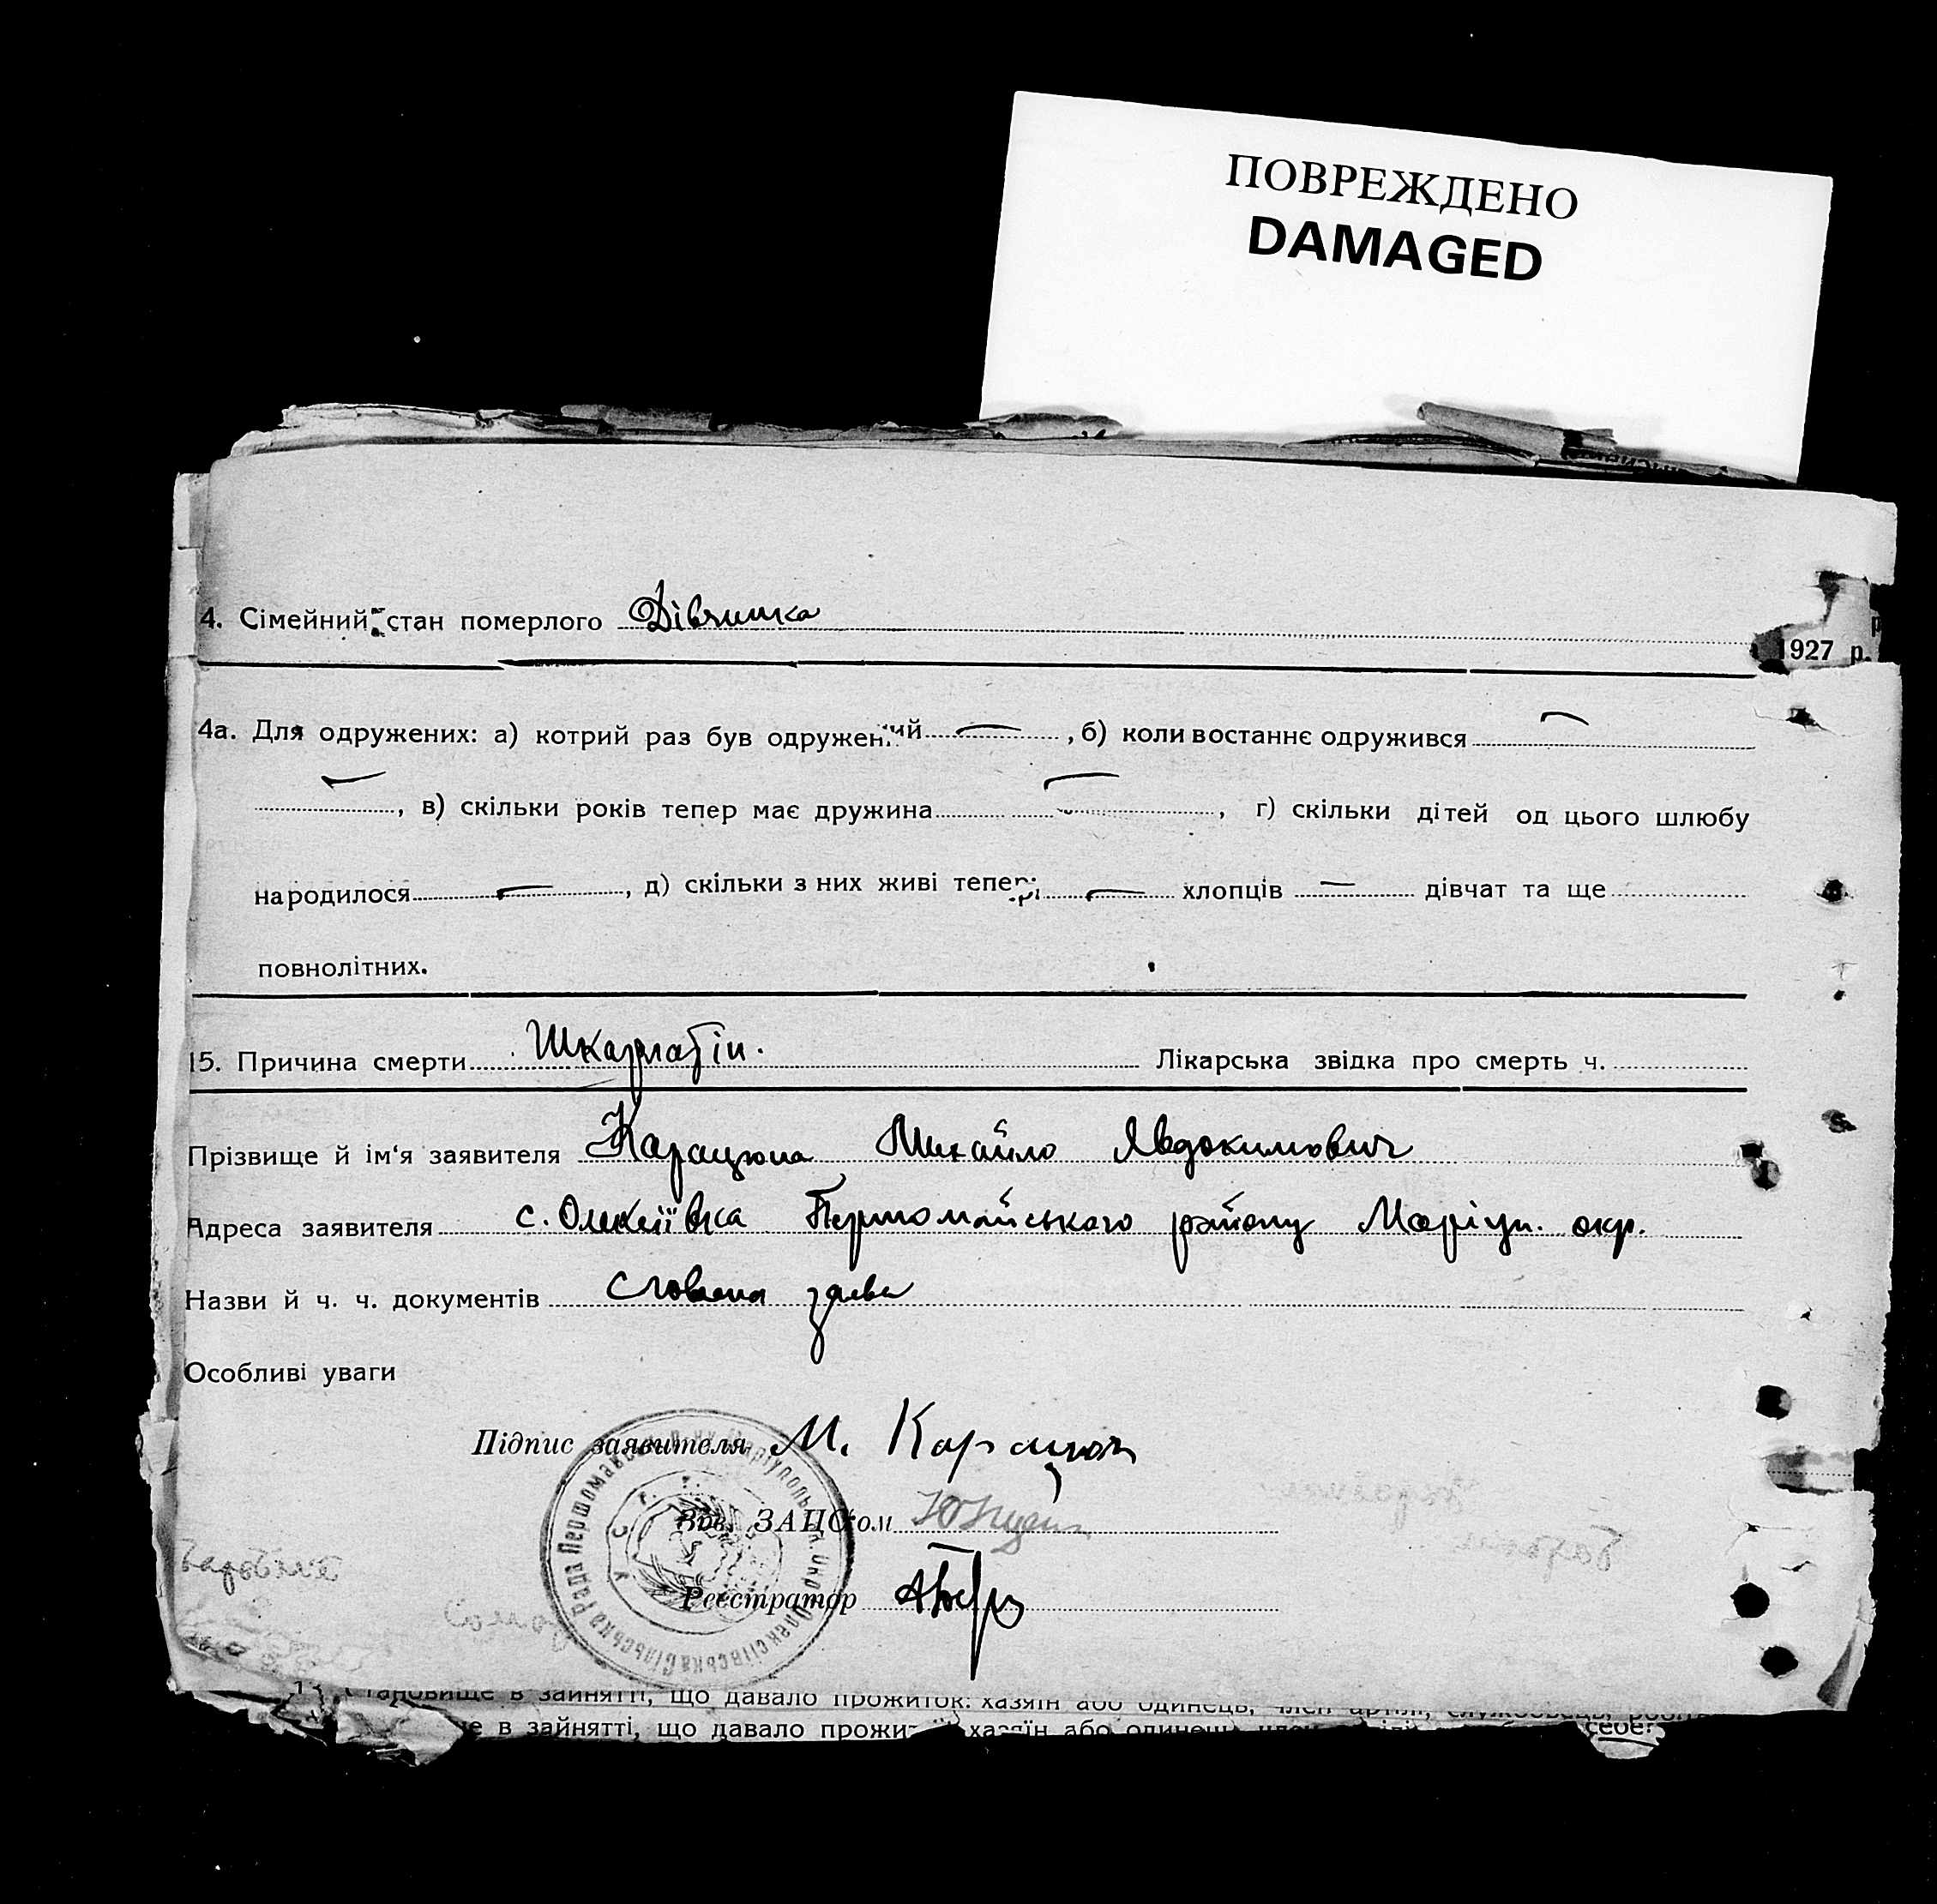 ПОВРЕЖДЕНО
DAMAGED
4. Сімейний стан померлого Дівчинка
1927 р.
4а. Для одружених: а) котрий раз був одружений — , б) коли востаннє одружився —
— , в) скільки років тепер має дружина — , г) скільки дітей од цього шлюбу
народилося — , д) скільки з них живі тепер: — хлопців — дівчат та ще
повнолітних.
15. Причина смерти Шкарлатін. Лікарська звідка про смерть ч.
Прізвище й ім'я заявителя Карацюпа Михайло Явдокимович
Адреса заявителя с. Олексіївка Першомайського району Маріуп. окр.
Назви й ч. ч. документів Словесна заява
Особливі уваги
Підпис заявителя М. Карацюпа
Зав. ЗАПС'ом
Реєстратор
Олексіївська Сільська Рада Першомайськ. р-ну Маріупольськ. окр.
становище в зайнятті, що давало прожиток: хазяїн або одинець, член артілі, службовець, робіт
е в зайнятті, що давало прожи хазяїн або одинець член
себе?